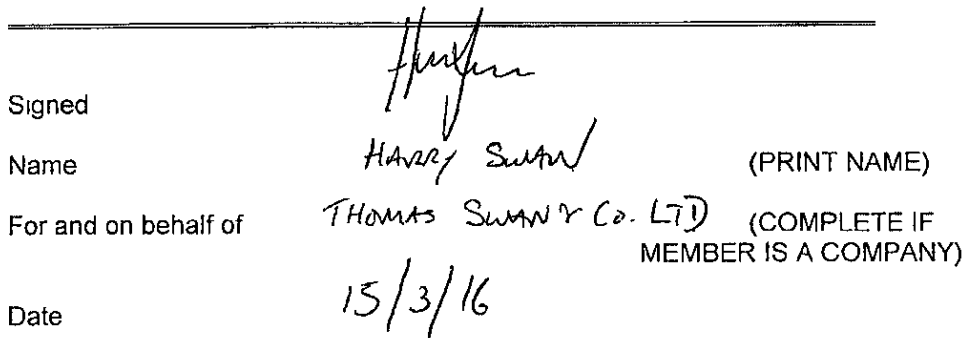 Signed
Name HARRY SWAN (PRINT NAME)
For and on behalf of THOMAS SWAN & Co. LTD (COMPLETE IF
MEMBER IS A COMPANY)
Date 15/3/16